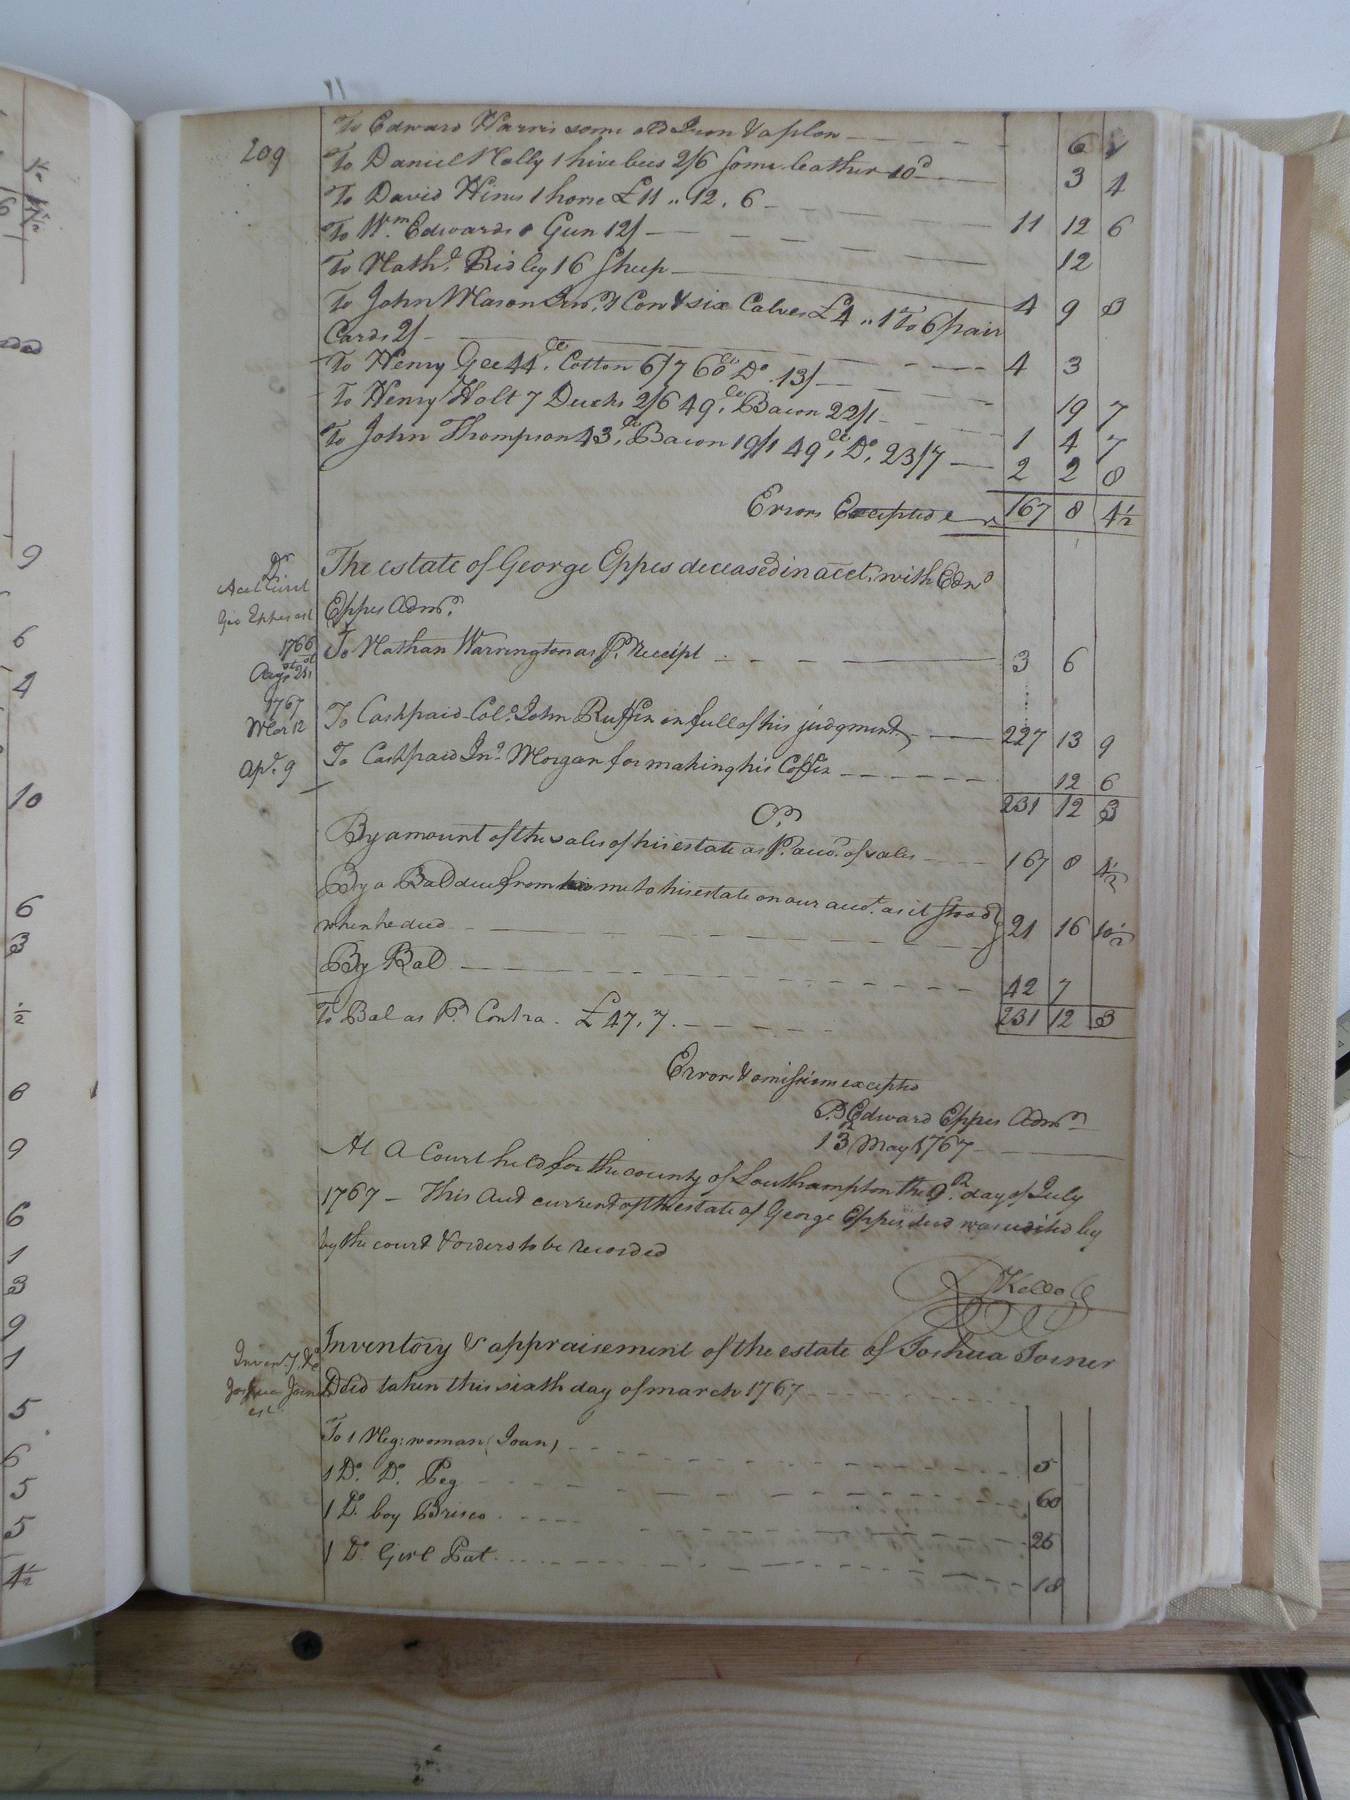 209
To Edward Harris some old Iron & aplon 6
To Daniel Nolly 1 hive bees 2/6 some leather 10d 3 4
To David Hines 1 horse £11 ,, 12 . 6 11 12 6
To Wm. Edwards a Gun 12/ 12
To Nathl. Ridley 16 Sheep 4 9 3
To John Mason Junr. 1 Cow & six Calves £4 ,, 1 To 6 pair
Cards 2/ 4 3
To Henry Gee 44 lb. Cotton 6/7 60 lb Do. 13/ 19 7
To Henry Holt 7 Ducks 2/6 49 lb. Bacon 22/1 1 4 7
To John Thompson 43 lb. Bacon 19/1 49 lb. Do. 23/7 2 2 8
Errors Excepted 167 8 4½
Dr
Acct Curt
Geo Eppes est
The estate of George Eppes deceased in acct. with Edwd
Eppes Admr.
1766
Augt 21st
To Nathan Warrington as Pr. Receipt 3 6
1767
Mar 12
To Cash paid Colo. John Ruffin in full of his judgment 227 13 9
Apl. 9
To Cash paid Jno. Morgan for making his Coffin 12 6
231 12 3
Cr
By amount of the sales of his estate as Pr. accot. of sales 167 8 4½
By a Bal due from me to his estate on our accot. as it stood
when he died 21 16 10½
By Bal 42 7
231 12 3
To Bal as Pr. Contra . £47 . 7 .
Errors & omissions excepted
Pr Edward Eppes Admr
13 May 1767
At A Court held for the county of Southampton the 9th. day of July
1767 – This Acct current of the estate of George Eppes decd was by
by the court & orderd to be recorded
R Kello
Inventy. &c
Joshua Joiner
est
Inventory & appraisement of the estate of Joshua Joiner
Decd taken this sixth day of march 1767
To 1 Neg: woman (Joan) 5
1 Do. Do. Peg 60
1 Do. boy Brisco 25
1 Do Girl Pat 18